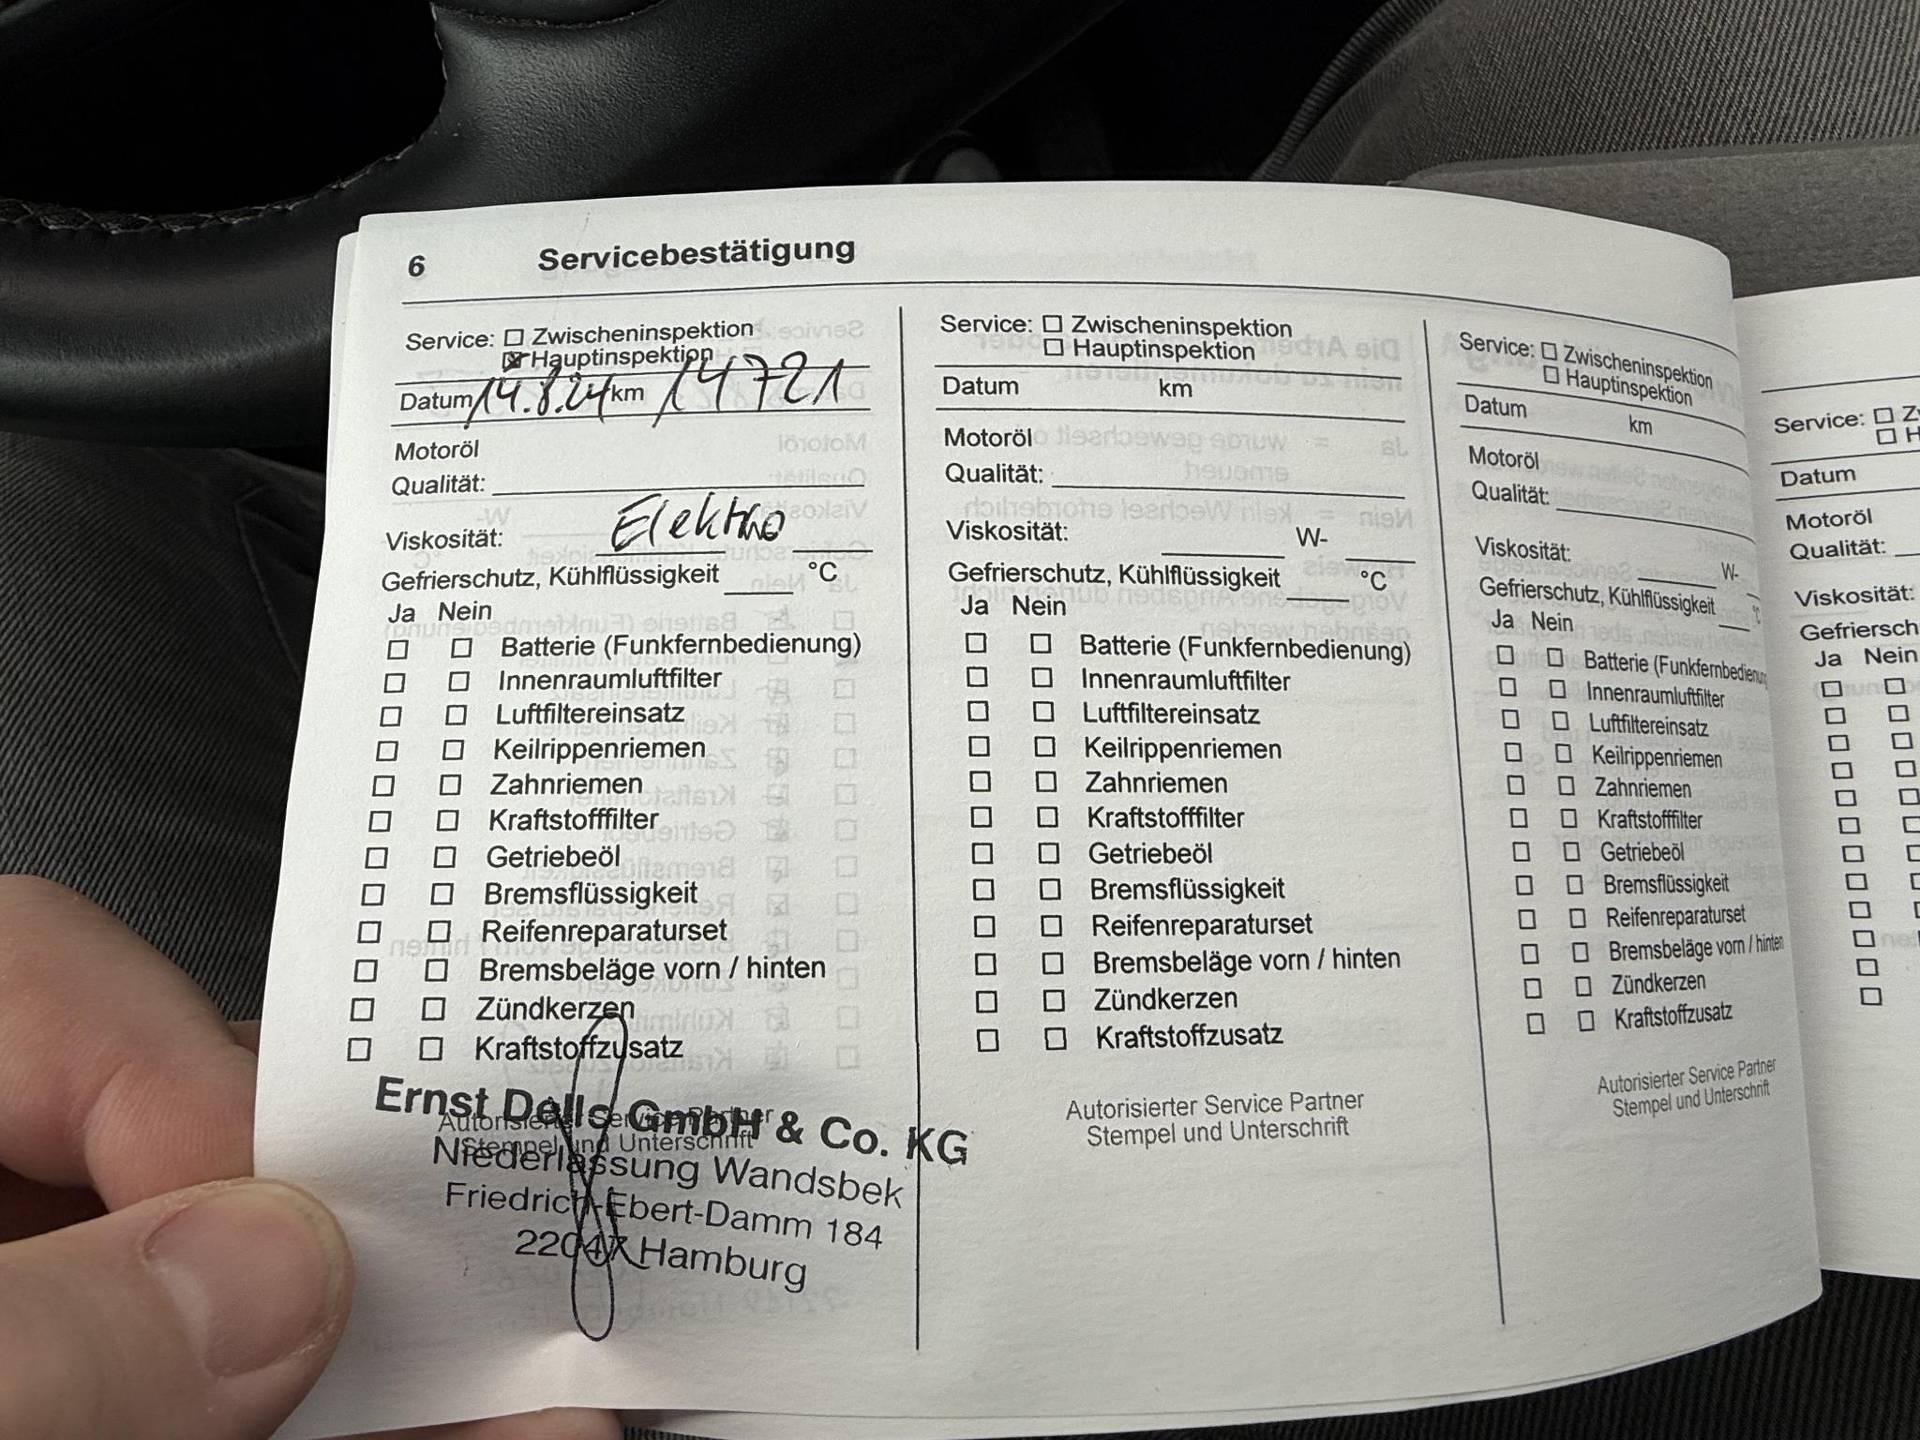 6 Servicebestätigung
Service: ☐ Zwischeninspektion
☒ Hauptinspektion
Datum 14.8.24 km 14721
Motoröl
Qualität:
Viskosität: Elektro
Gefrierschutz, Kühlflüssigkeit °C
Ja Nein
☐ ☐ Batterie (Funkfernbedienung)
☐ ☐ Innenraumluftfilter
☐ ☐ Luftfiltereinsatz
☐ ☐ Keilrippenriemen
☐ ☐ Zahnriemen
☐ ☐ Kraftstofffilter
☐ ☐ Getriebeöl
☐ ☐ Bremsflüssigkeit
☐ ☐ Reifenreparaturset
☐ ☐ Bremsbeläge vorn / hinten
☐ ☐ Zündkerzen
☐ ☐ Kraftstoffzusatz
Autorisierter Service Partner
Stempel und Unterschrift
Ernst Dello GmbH & Co. KG
Niederlassung Wandsbek
Friedrich-Ebert-Damm 184
22047 Hamburg
Service: ☐ Zwischeninspektion
☐ Hauptinspektion
Datum km
Motoröl
Qualität:
Viskosität: W-
Gefrierschutz, Kühlflüssigkeit °C
Ja Nein
☐ ☐ Batterie (Funkfernbedienung)
☐ ☐ Innenraumluftfilter
☐ ☐ Luftfiltereinsatz
☐ ☐ Keilrippenriemen
☐ ☐ Zahnriemen
☐ ☐ Kraftstofffilter
☐ ☐ Getriebeöl
☐ ☐ Bremsflüssigkeit
☐ ☐ Reifenreparaturset
☐ ☐ Bremsbeläge vorn / hinten
☐ ☐ Zündkerzen
☐ ☐ Kraftstoffzusatz
Autorisierter Service Partner
Stempel und Unterschrift
Service: ☐ Zwischeninspektion
☐ Hauptinspektion
Datum km
Motoröl
Qualität:
Viskosität: W-
Gefrierschutz, Kühlflüssigkeit °C
Ja Nein
☐ ☐ Batterie (Funkfernbedienu
☐ ☐ Innenraumluftfilter
☐ ☐ Luftfiltereinsatz
☐ ☐ Keilrippenriemen
☐ ☐ Zahnriemen
☐ ☐ Kraftstofffilter
☐ ☐ Getriebeöl
☐ ☐ Bremsflüssigkeit
☐ ☐ Reifenreparaturset
☐ ☐ Bremsbeläge vorn / hinten
☐ ☐ Zündkerzen
☐ ☐ Kraftstoffzusatz
Autorisierter Service Partner
Stempel und Unterschrift
Service: ☐ Z
☐ H
Datum
Motoröl
Qualität:
Viskosität:
Gefriersch
Ja Nein